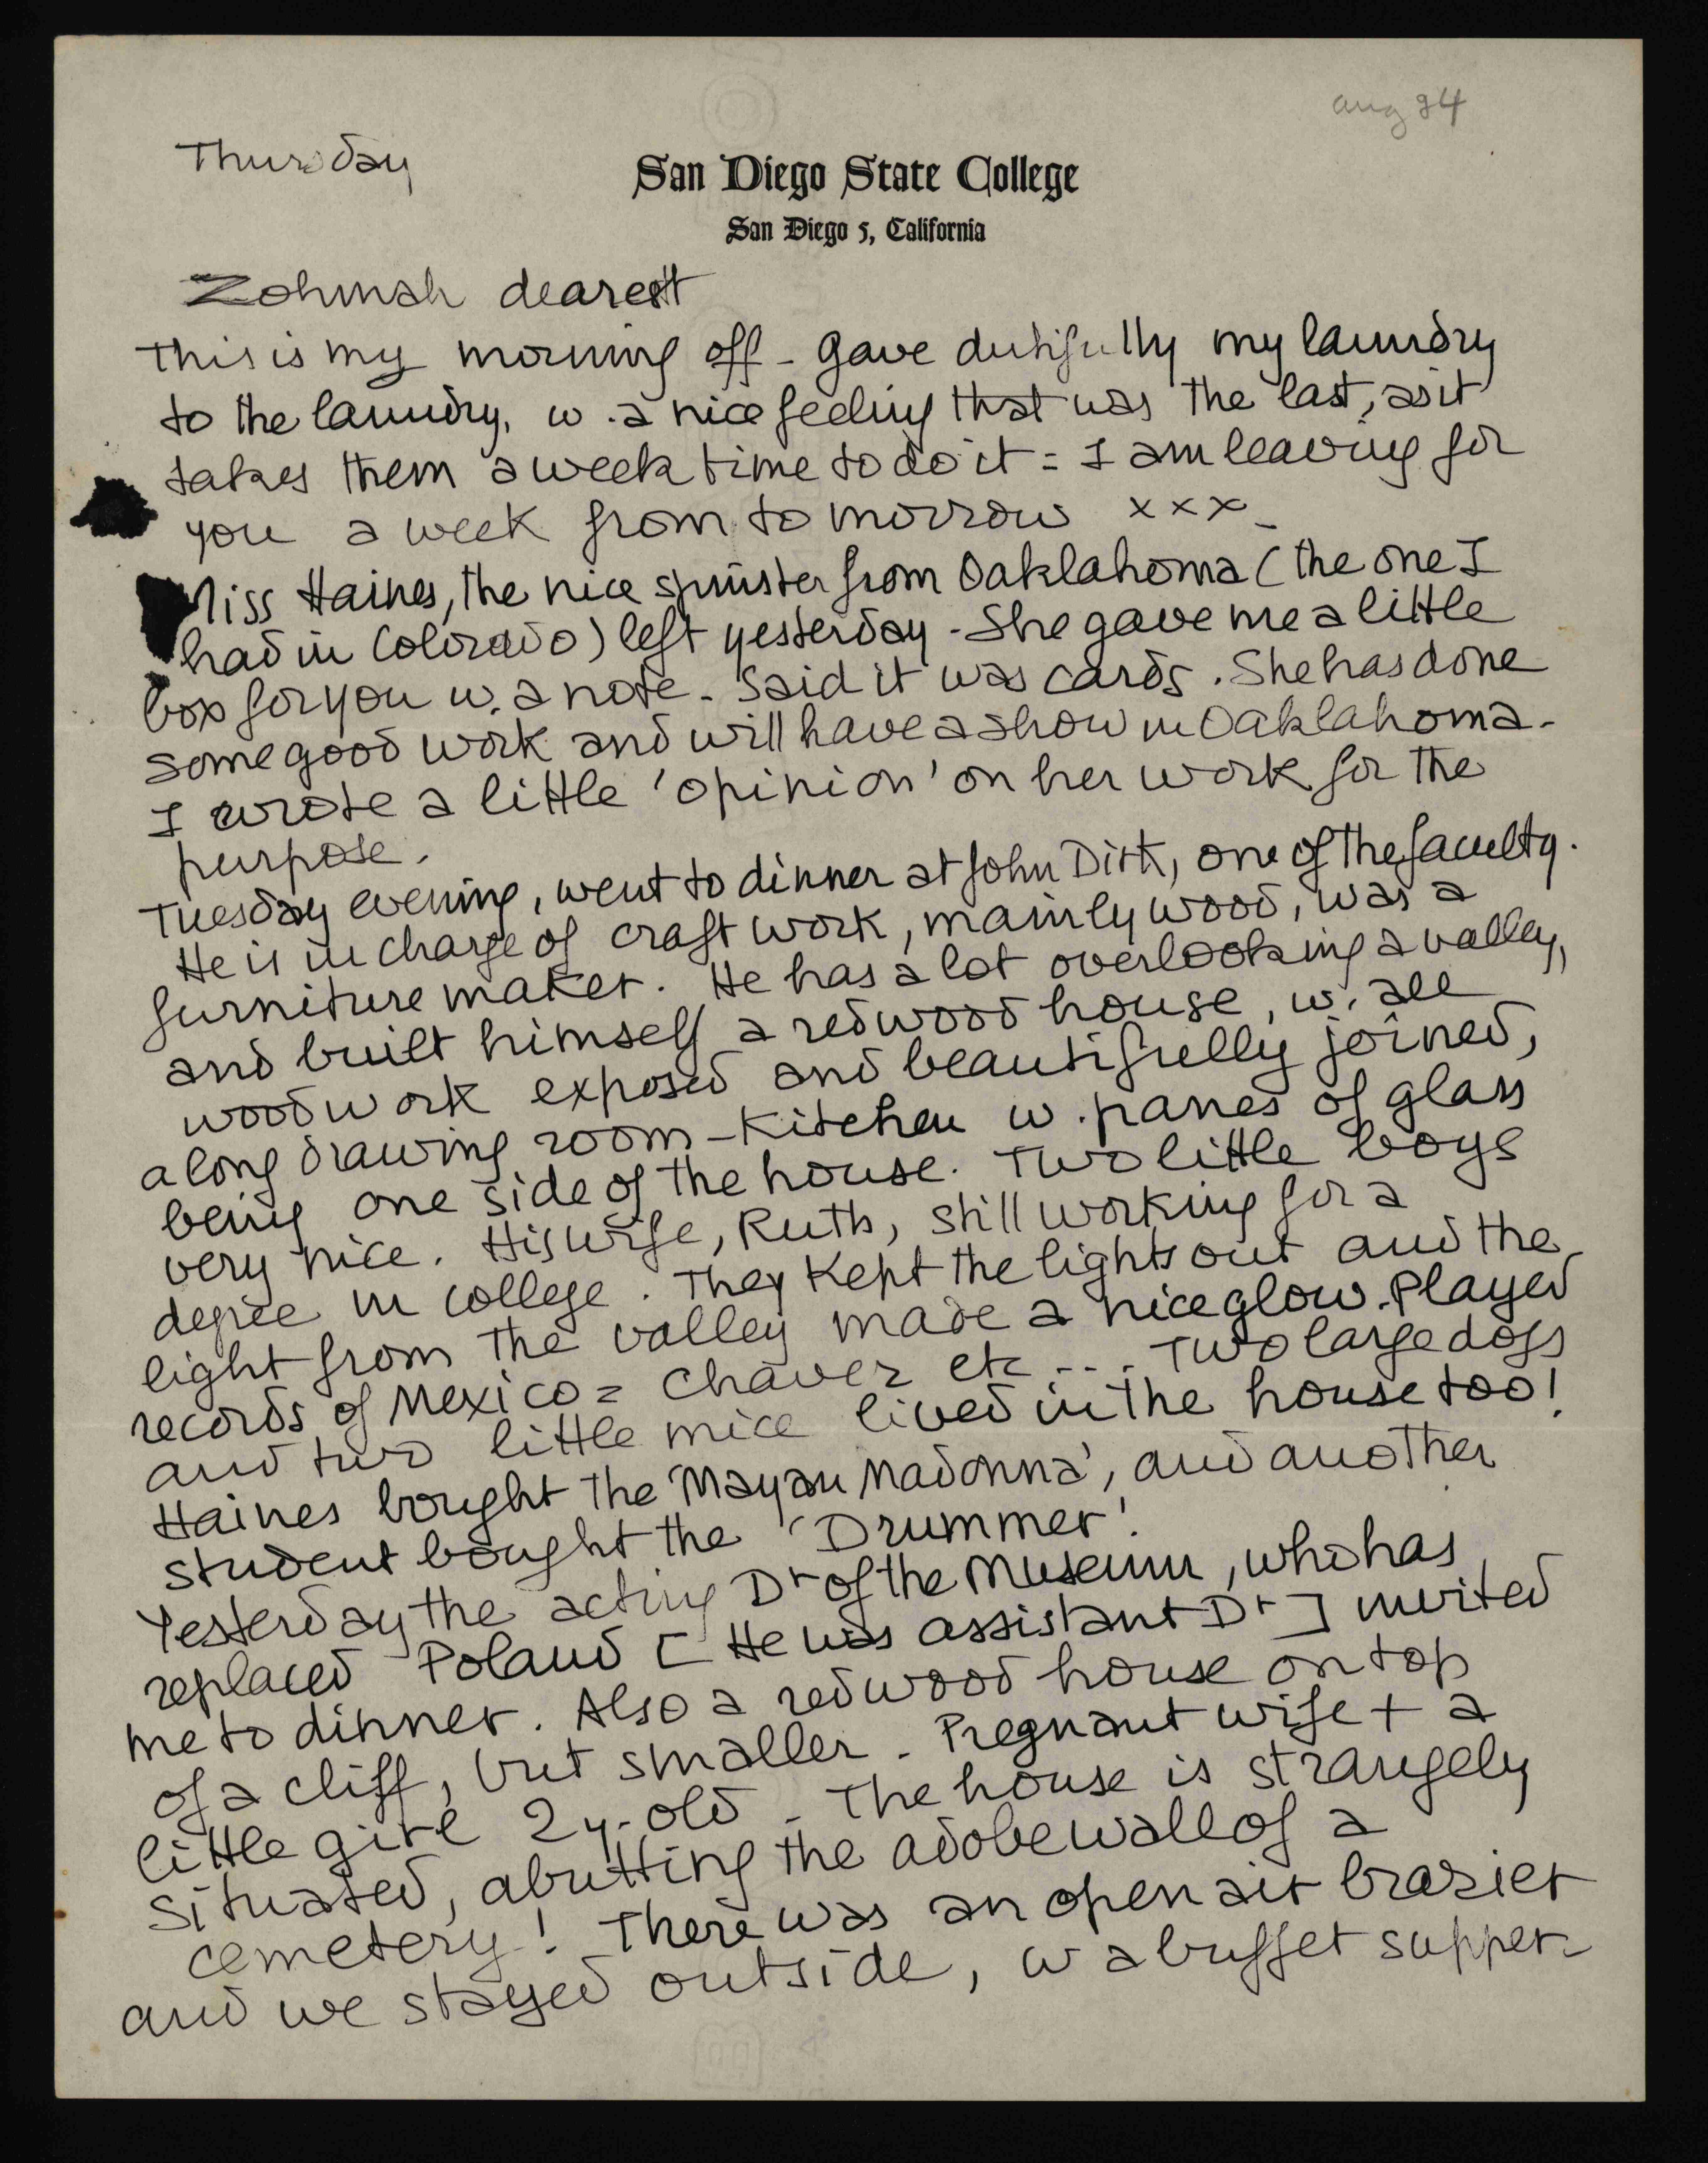 aug 24
Thursday
San Diego State College
San Diego 5, California
Zohmah dearest
This is my morning off - Gave dutifully my laundry
to the laundry, w. a nice feeling that was the last, as it
takes them a week time to do it = I am leaving for
you a week from tomorrow xxx -
Miss Haines, the nice spinster from Oaklahoma (the one I
had in Colorado) left yesterday - She gave me a little
box for you w. a note - Said it was cards. She has done
some good work and will have a show in Oaklahoma -
I wrote a little 'opinion' on her work for the
purpose.
Tuesday evening, went to dinner at John Dirk, one of the faculty.
He is in charge of craft work, mainly wood, was a
furniture maker. He has a lot overlooking a valley,
and built himself a redwood house, w. all
woodwork exposed and beautifully joined,
a long drawing room - Kitchen w. panes of glass
being one side of the house. Two little boys
very nice. His wife, Ruth, still working for a
degree in college. They kept the lights out and the
light from the valley made a nice glow. Played
records of Mexico = Chavez etc ... Two large dogs
and two little mice lived in the house too!
Haines bought the 'Mayan Madonna', and another
student bought the 'Drummer'.
Yesterday the acting Dr of the Museum, who has
replaced Poland [He was assistant Dr] invited
me to dinner. Also a redwood house on top
of a cliff, but smaller - Pregnant wife + a
little girl 2 y. old - The house is strangely
situated, abutting the adobe wall of a
cemetery! There was an open air brazier
and we stayed outside, w a buffet supper -